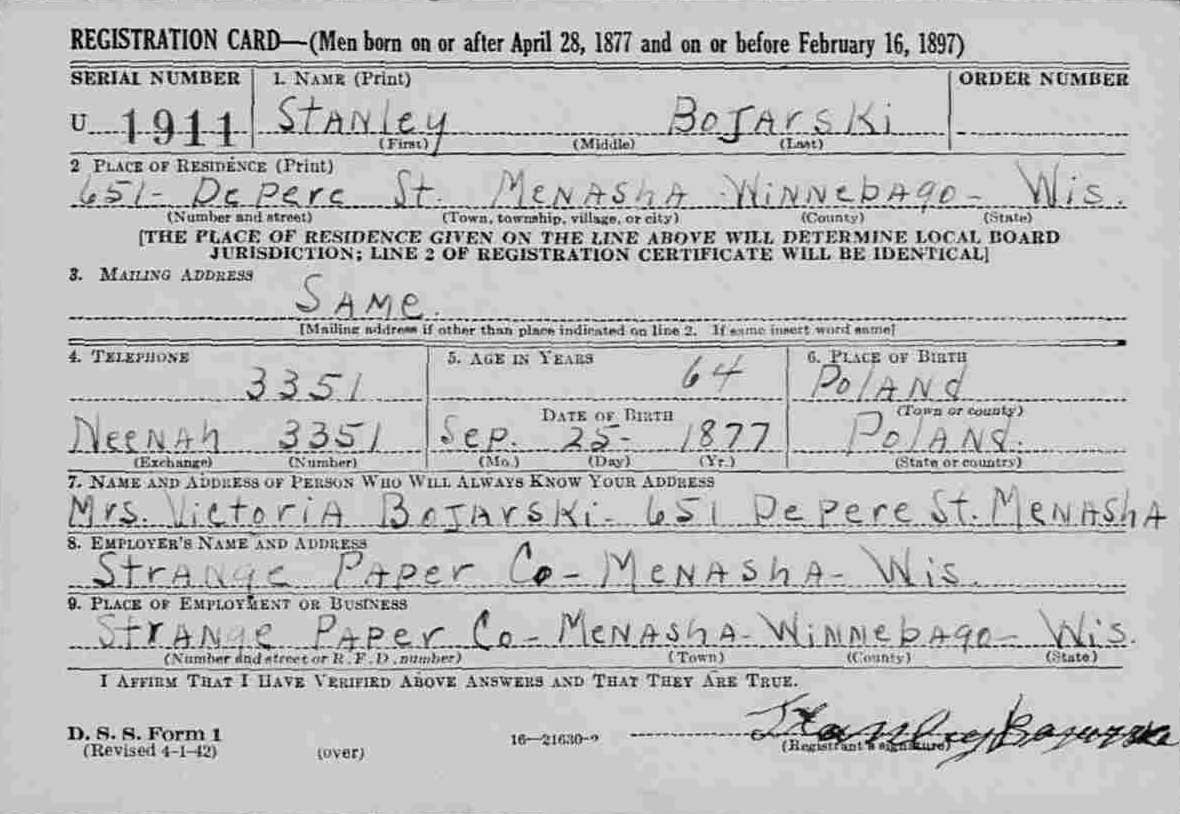 REGISTRATION CARD—(Men born on or after April 28, 1877 and on or before February 16, 1897)
SERIAL NUMBER 1. NAME (Print) ORDER NUMBER
U 1911 STANley BOJArSKi
(First) (Middle) (Last)
2 PLACE OF RESIDENCE (Print)
651- DePere St. MENASHA - WiNNebAgo - Wis.
(Number and street) (Town, township, village, or city) (County) (State)
[THE PLACE OF RESIDENCE GIVEN ON THE LINE ABOVE WILL DETERMINE LOCAL BOARD
JURISDICTION; LINE 2 OF REGISTRATION CERTIFICATE WILL BE IDENTICAL]
3. MAILING ADDRESS
SAMe.
[Mailing address if other than place indicated on line 2. If same insert word same]
4. TELEPHONE 5. AGE IN YEARS 6. PLACE OF BIRTH
3351 64 PolANd
DATE OF BIRTH (Town or county)
NeeNAh 3351 Sep. 25- 1877 PolANd.
(Exchange) (Number) (Mo.) (Day) (Yr.) (State or country)
7. NAME AND ADDRESS OF PERSON WHO WILL ALWAYS KNOW YOUR ADDRESS
Mrs. VictoriA BOJArSKi - 651 DePere St. MeNAShA
8. EMPLOYER'S NAME AND ADDRESS
StrANge PAPer Co - MeNAShA - Wis.
9. PLACE OF EMPLOYMENT OR BUSINESS
StrANge PAPer Co - MeNAShA - WiNNebAgo - Wis.
(Number and street or R. F. D. number) (Town) (County) (State)
I AFFIRM THAT I HAVE VERIFIED ABOVE ANSWERS AND THAT THEY ARE TRUE.
Stanley
D. S. S. Form 1
(Revised 4-1-42) (over) 16—21630-2 (Registrant's signature)